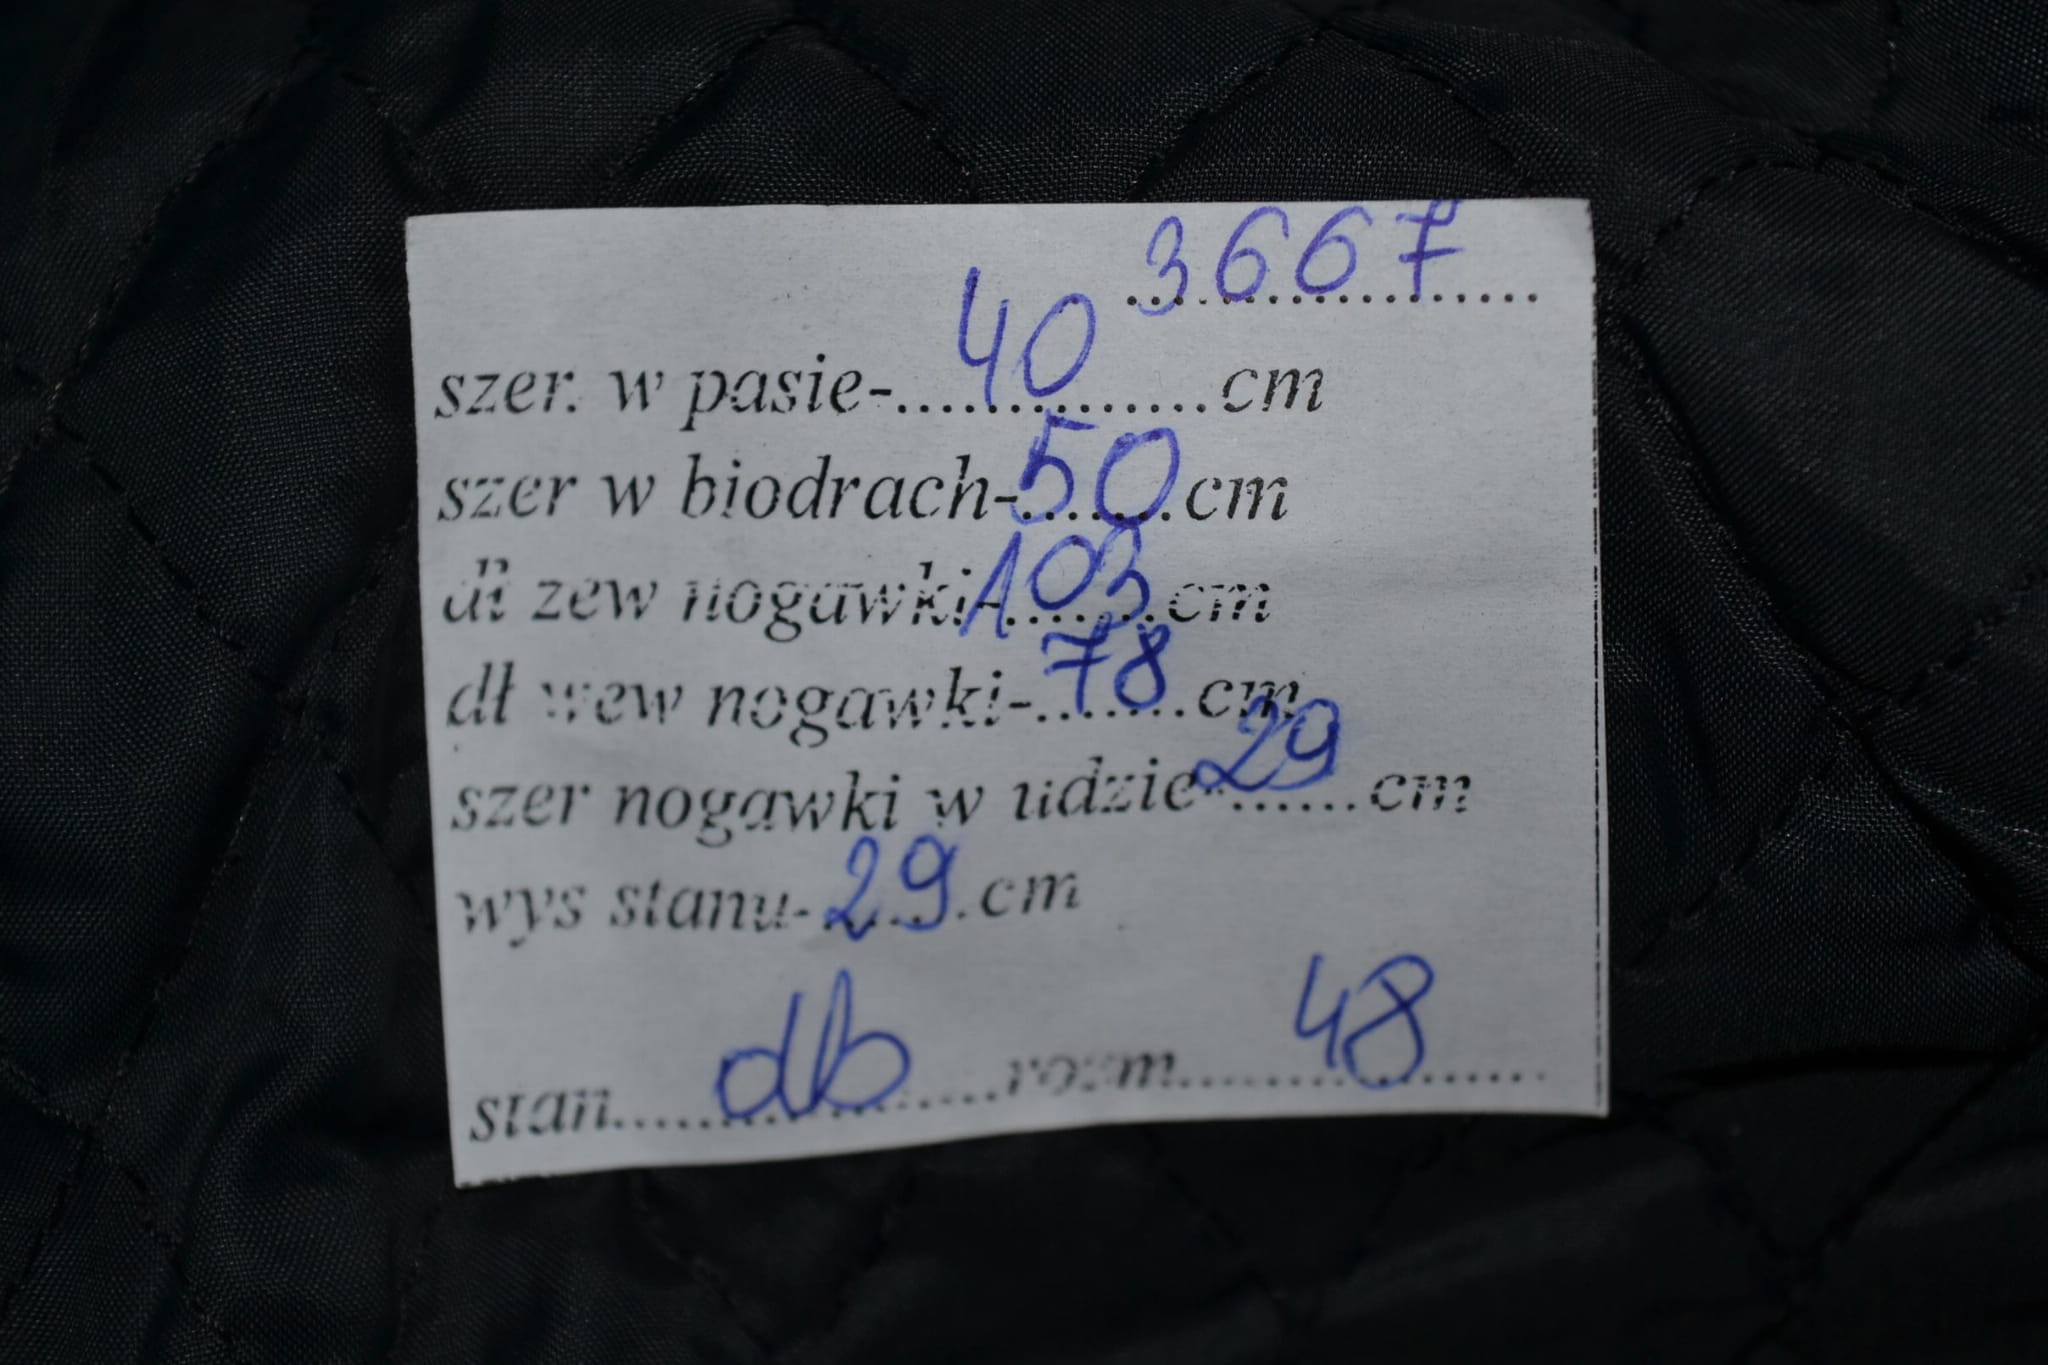 3667
szer. w pasie-40cm
szer w biodrach-50cm
dł zew nogawki-103cm
dł wew nogawki-78cm
szer nogawki w udzie-29cm
wys stanu-29cm
stan....db....rozm....48....